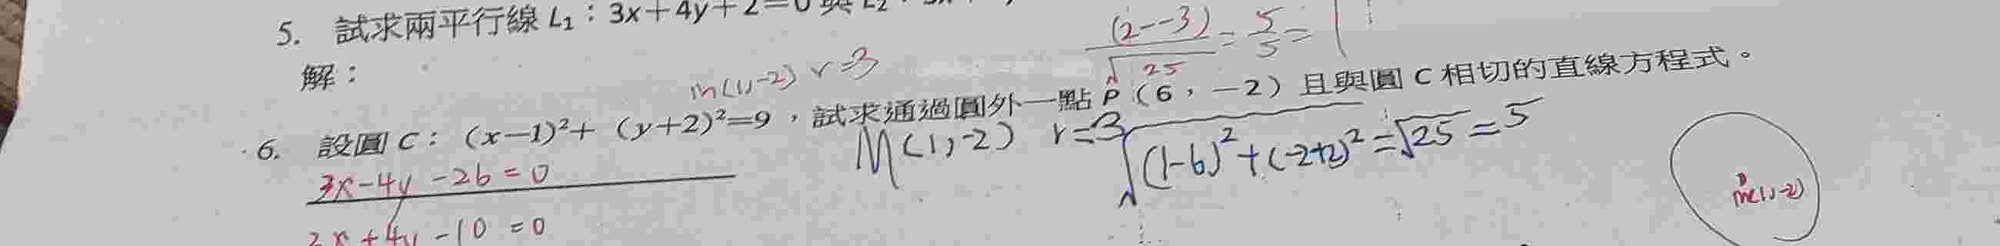 5. 試求兩平行線 L₁：3x＋4y＋2＝0 與 L₂
(2--3)/√25 = 5/5 = 1
解：
m(1,-2) r=3
6. 設圓 C：(x－1)²＋(y＋2)²＝9，試求通過圓外一點 P（6，－2）且與圓 C 相切的直線方程式。
M(1,-2) r=3 √(1-6)²+(-2+2)² = √25 = 5
3x-4y-26=0
m(1,-2)
3x+4y-10=0